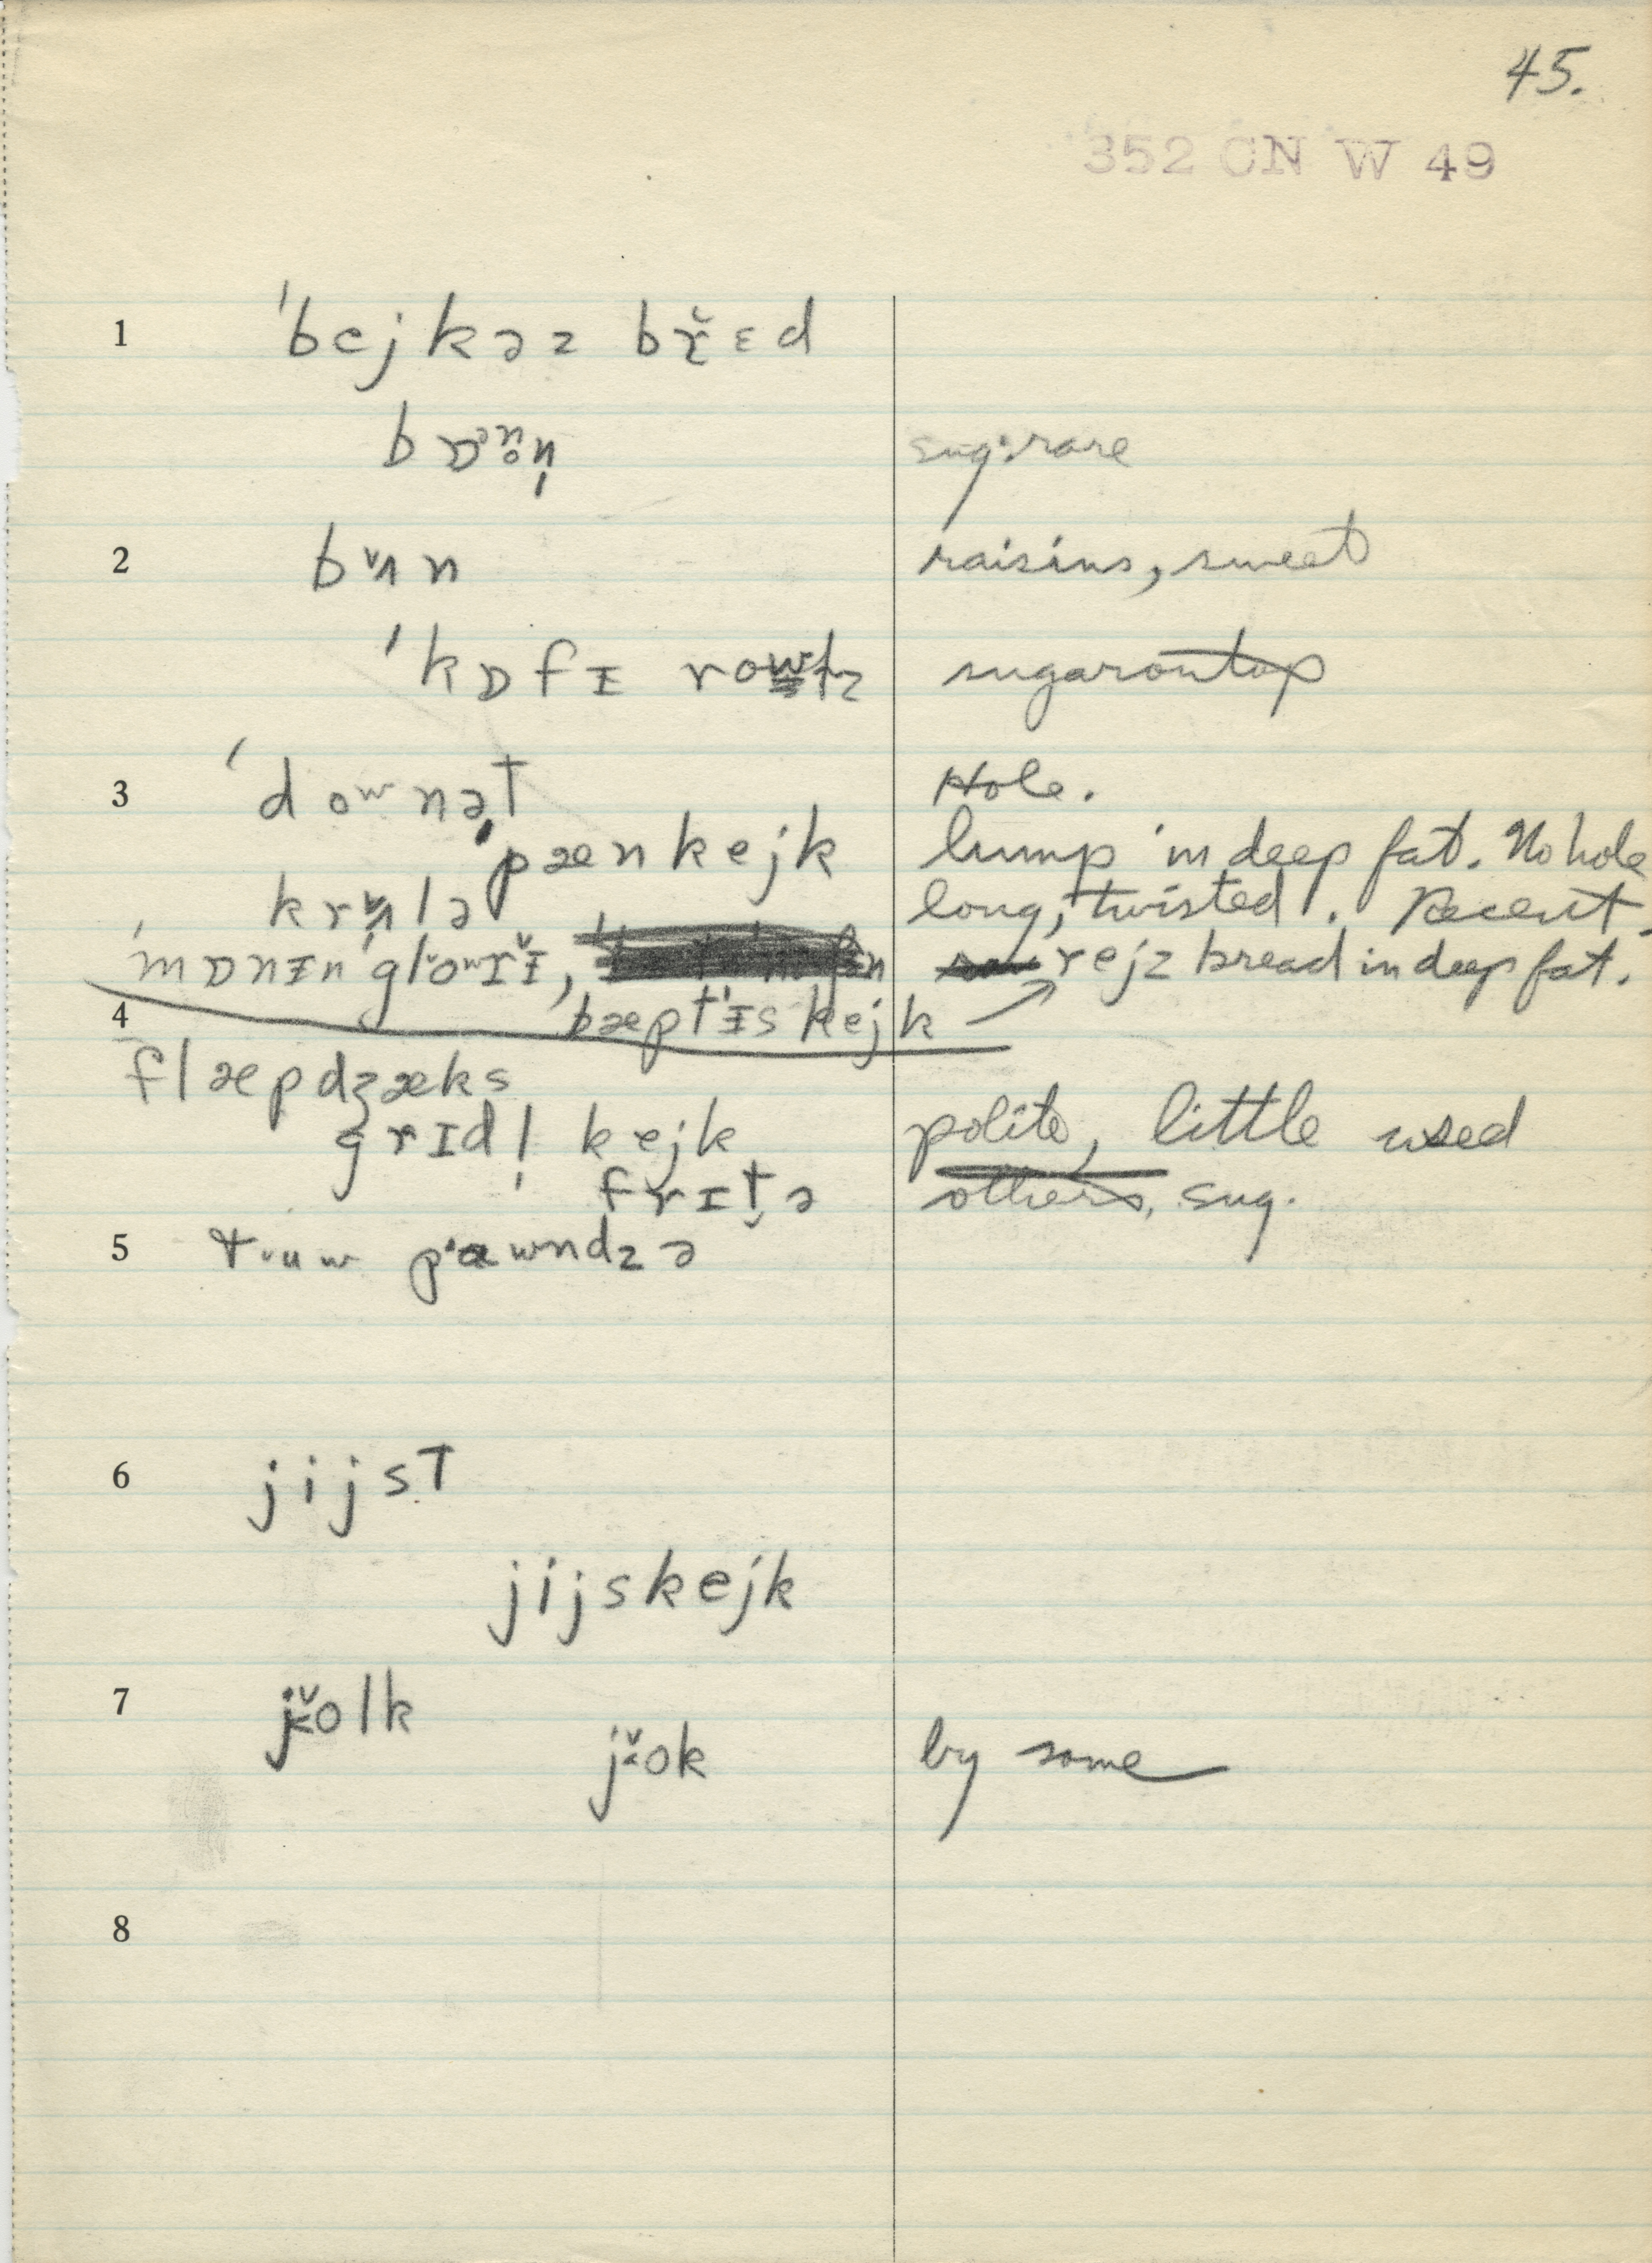 45.
352 CN W 49
1 ˈbejkəz br̬̆ɛd
brɒᵊⁿn̩ sug: rare
2 bʌ̆n raisins, sweet
ˈkɒfɪ rowlz sugar on top
3 ˈdoʷnət Hole.
ˈpænkejk lump in deep fat. No hole
krʌ̆lə long, twisted. Recent.
ˈmɒnɪn ˈglŏʷrɪ̆, rejz bread in deep fat.
4 bæptɪs kejk →
flæpdʒæks
grɪdl̩ kejk polite, little used
frɪt̬ə others, sug.
5 tᵿuw pawndz ə
6 jijst
jijskejk
7 jŏlk
jŏk by some
8